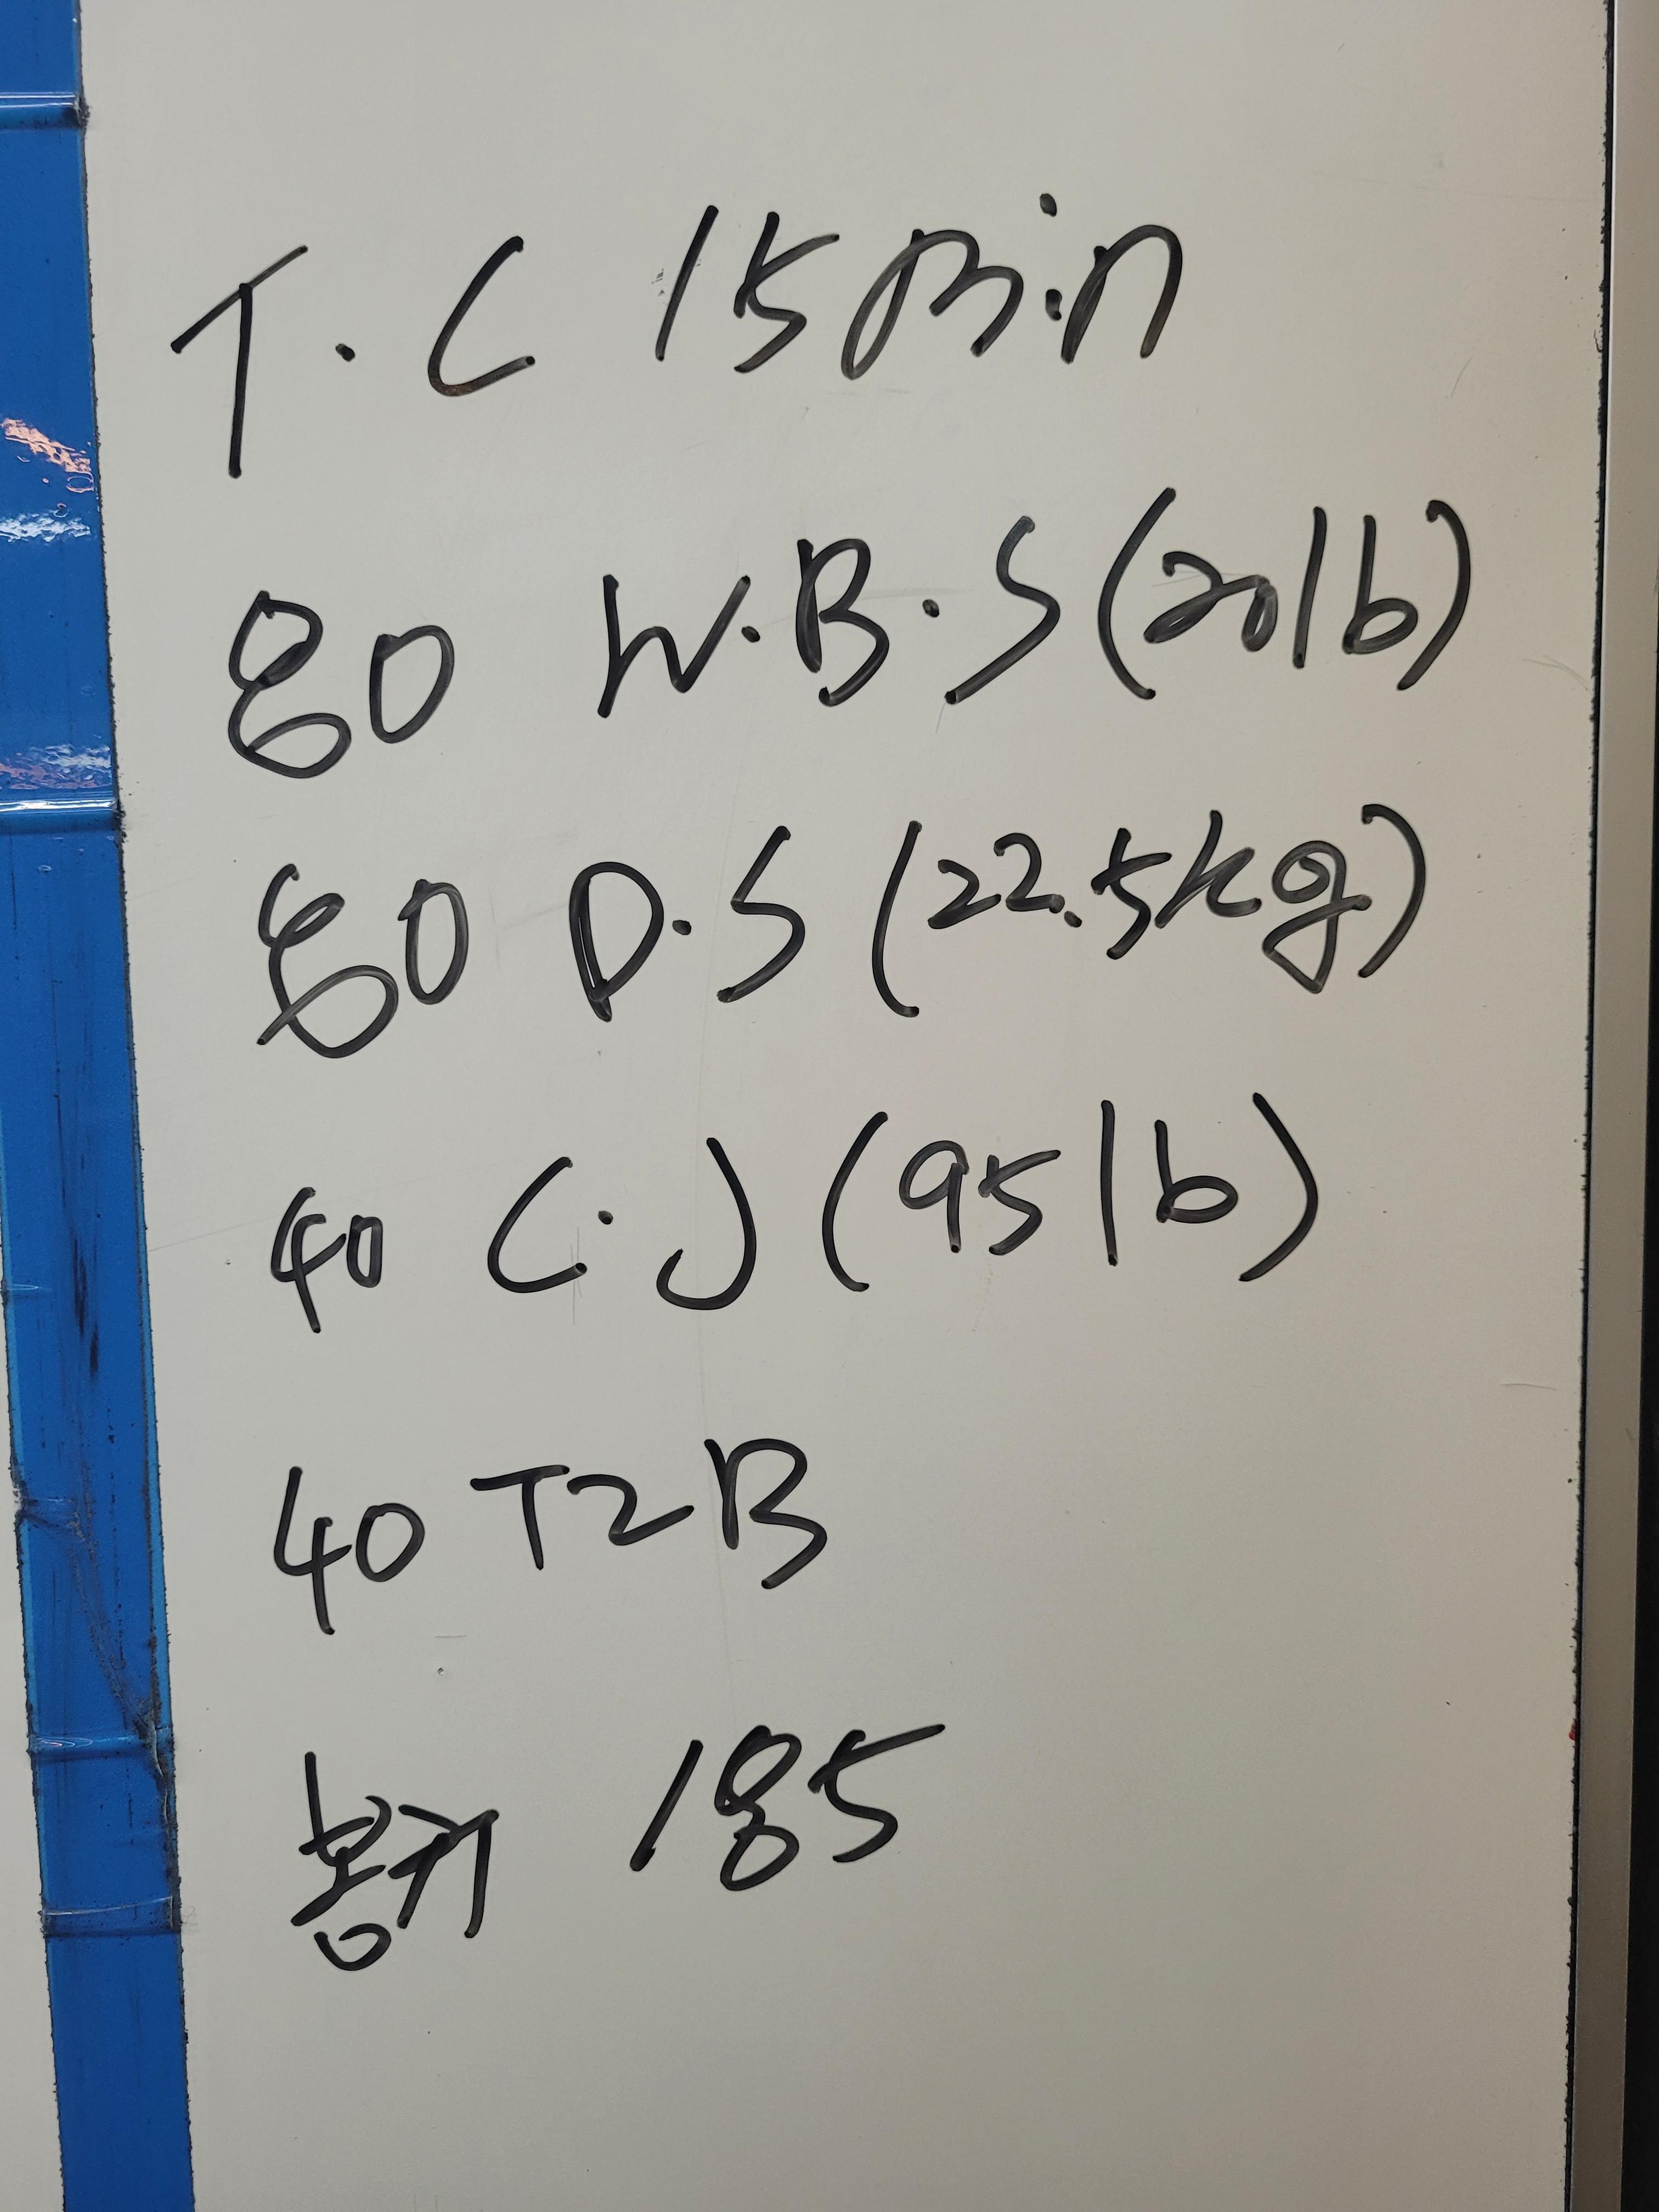 T.C 15min
80 W.B.S (20lb)
80 D.S (22.5kg)
40 C.J (95lb)
40 T2B
185